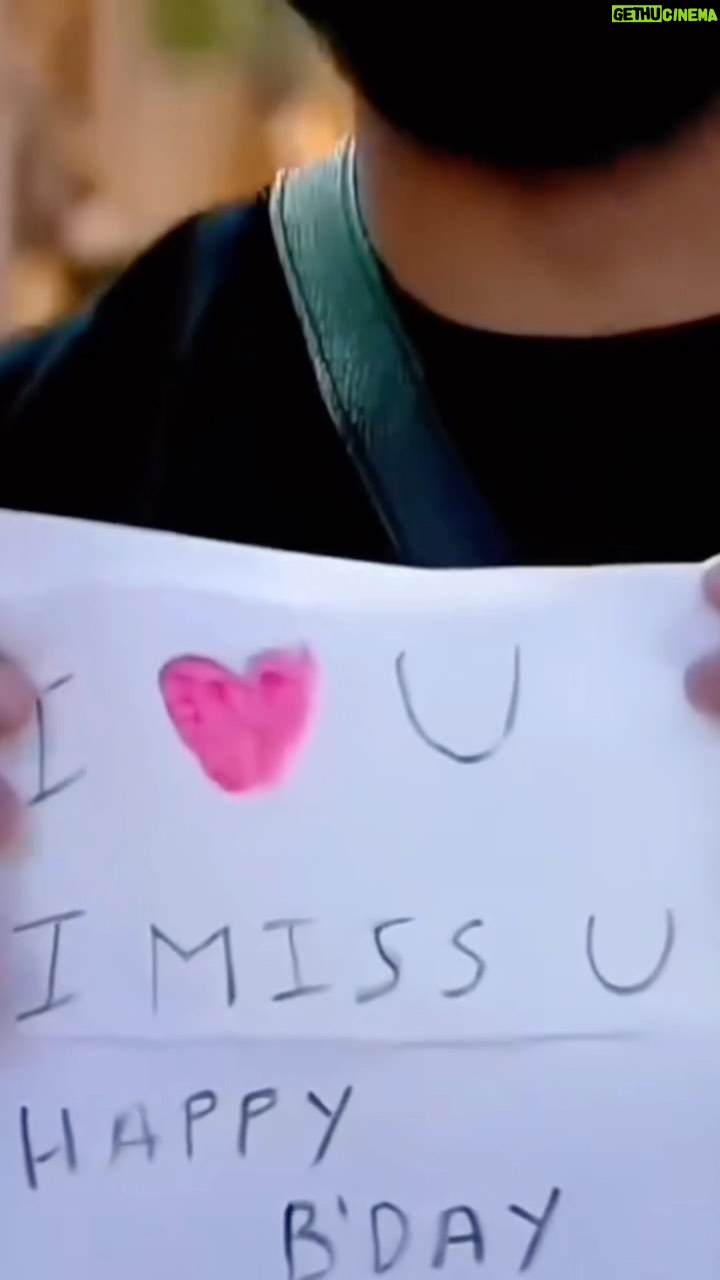 GETHUCINEMA
I ♥ U
I MISS U
HAPPY
B'DAY